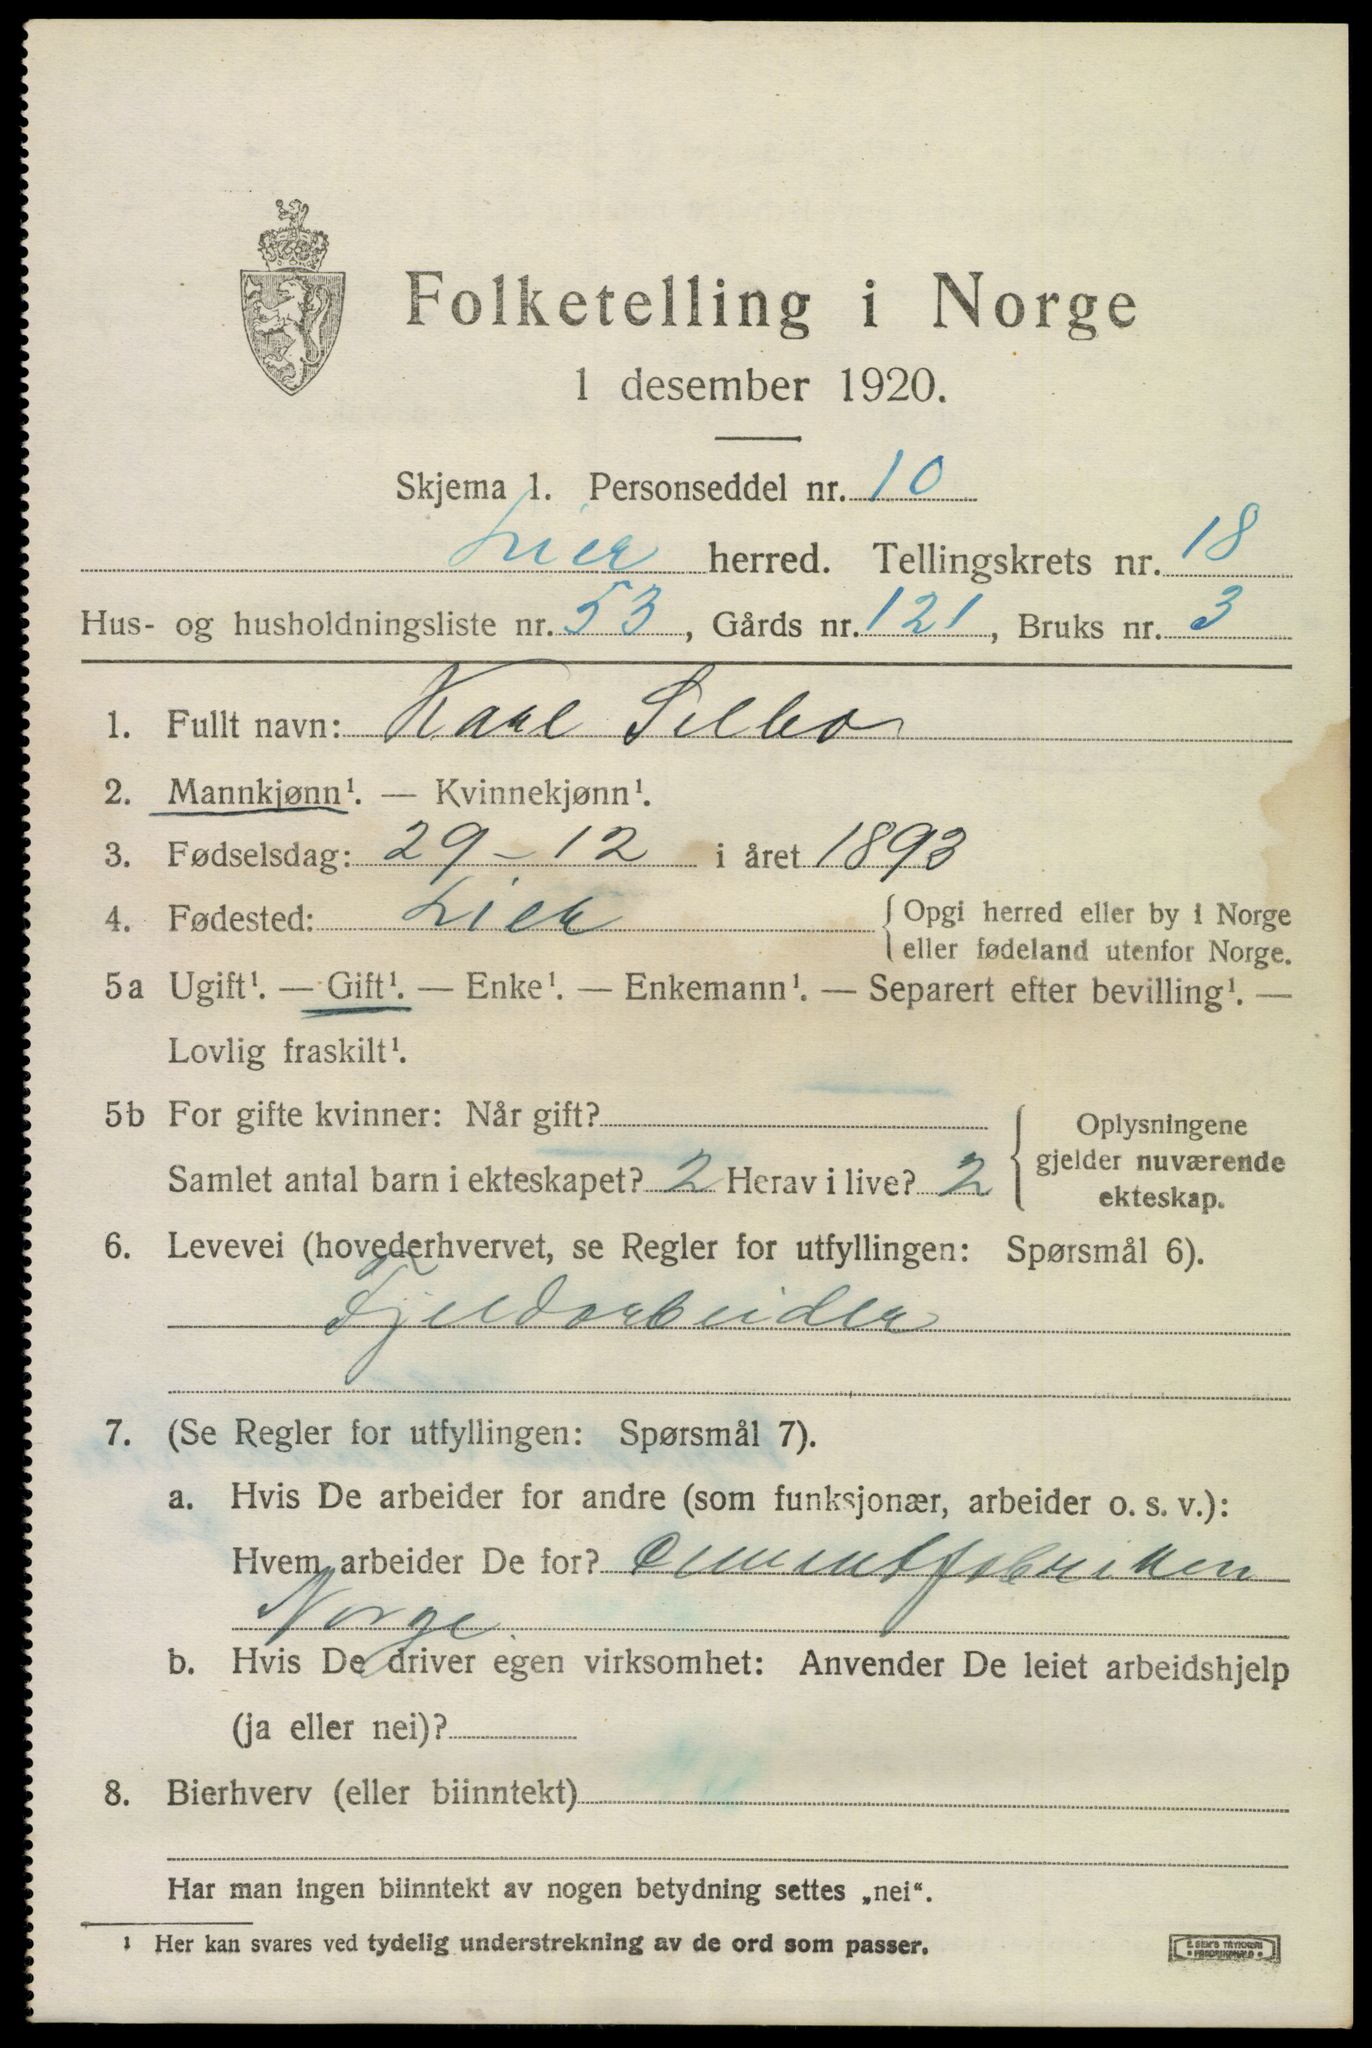 Folketelling i Norge
1 desember 1920.
Skjema 1. Personseddel nr. 10
Lier herred. Tellingskrets nr. 18
Hus- og husholdningsliste nr. 53, Gårds nr. 121, Bruks nr. 3
1. Fullt navn: Karl Selbo
2. Mannkjønn¹. — Kvinnekjønn¹.
3. Fødselsdag: 29-12 i året 1893
4. Fødested: Lier { Opgi herred eller by i Norge
eller fødeland utenfor Norge.
5a Ugift¹. — Gift¹. — Enke¹. — Enkemann¹. — Separert efter bevilling¹. —
Lovlig fraskilt¹.
5b For gifte kvinner: Når gift?
Samlet antal barn i ekteskapet? 2 Herav i live? 2
Oplysningene
gjelder nuværende
ekteskap.
6. Levevei (hovederhvervet, se Regler for utfyllingen: Spørsmål 6).
Fjeldarbeider
7. (Se Regler for utfyllingen: Spørsmål 7).
a. Hvis De arbeider for andre (som funksjonær, arbeider o. s. v.):
Hvem arbeider De for? Cementfabriken
Norge.
b. Hvis De driver egen virksomhet: Anvender De leiet arbeidshjelp
(ja eller nei)?
8. Bierhverv (eller biinntekt)
Har man ingen biinntekt av nogen betydning settes „nei“.
¹ Her kan svares ved tydelig understrekning av de ord som passer.